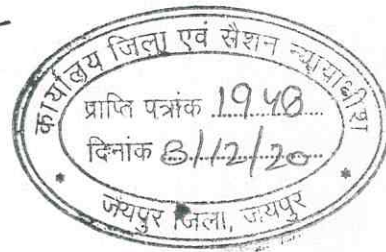 कार्यालय जिला एवं सैशन न्यायाधीश
प्राप्ति पत्रांक 1948
दिनांक 8/12/20
* जयपुर जिला, जयपुर *